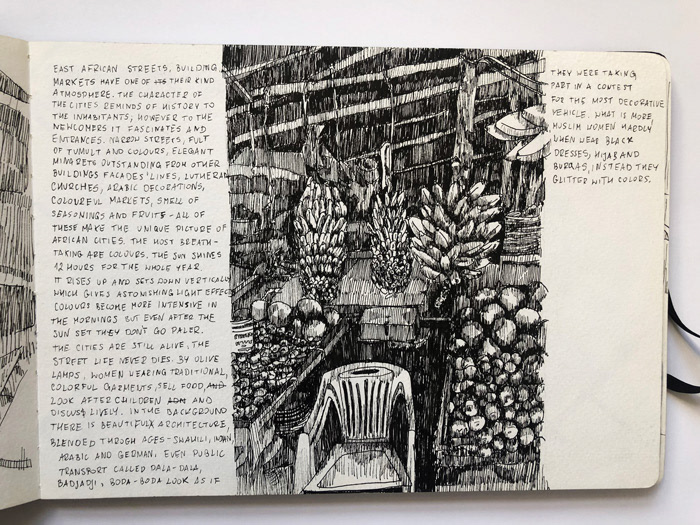 EAST AFRICAN STREETS, BUILDING,
MARKETS HAVE ONE OF ITS THEIR KIND
ATMOSPHERE. THE CHARACTER OF
THE CITIES REMINDS OF HISTORY TO
THE INHABITANTS, HOWEVER TO THE
NEWCOMERS IT FASCINATES AND
ENTRANCES. NARROW STREETS, FULL
OF TUMULT AND COLOURS, ELEGANT
MINARETS OUTSTANDING FROM OTHER
BUILDINGS FACADES' LINES, LUTHERAN
CHURCHES, ARABIC DECORATIONS,
COLOURFUL MARKETS, SMELL OF
SEASONINGS AND FRUITS - ALL OF
THESE MAKE THE UNIQUE PICTURE OF
AFRICAN CITIES. THE MOST BREATH-
TAKING ARE COLOURS. THE SUN SHINES
12 HOURS FOR THE WHOLE YEAR.
IT RISES UP AND SETS DOWN VERTICALLY
WHICH GIVES ASTONISHING LIGHT EFFECTS
COLOURS BECOME MORE INTENSIVE IN
THE MORNINGS BUT EVEN AFTER THE
SUN SET THEY DON'T GO PALER.
THE CITIES ARE STILL ALIVE, THE
STREET LIFE NEVER DIES. BY OLIVE
LAMPS, WOMEN WEARING TRADITIONAL,
COLORFUL GARMENTS, SELL FOOD, AND
LOOK AFTER CHILDREN AND
DISCUSS LIVELY. IN THE BACKGROUND
THERE IS BEAUTIFULY ARCHITECTURE,
BLENDED THROUGH AGES - SWAHILI, INDIAN,
ARABIC AND GERMAN, EVEN PUBLIC
TRANSPORT CALLED DALA-DALA,
BADJADJI, BODA-BODA LOOK AS IF
THEY WERE TAKING
PART IN A CONTEST
FOR THE MOST DECORATIVE
VEHICLE. WHAT IS MORE,
MUSLIM WOMEN HARDLY
WHEN WEAR BLACK
DRESSES, HIJAB AND
BURRAS, INSTEAD THEY
GLITTER WITH COLORS.